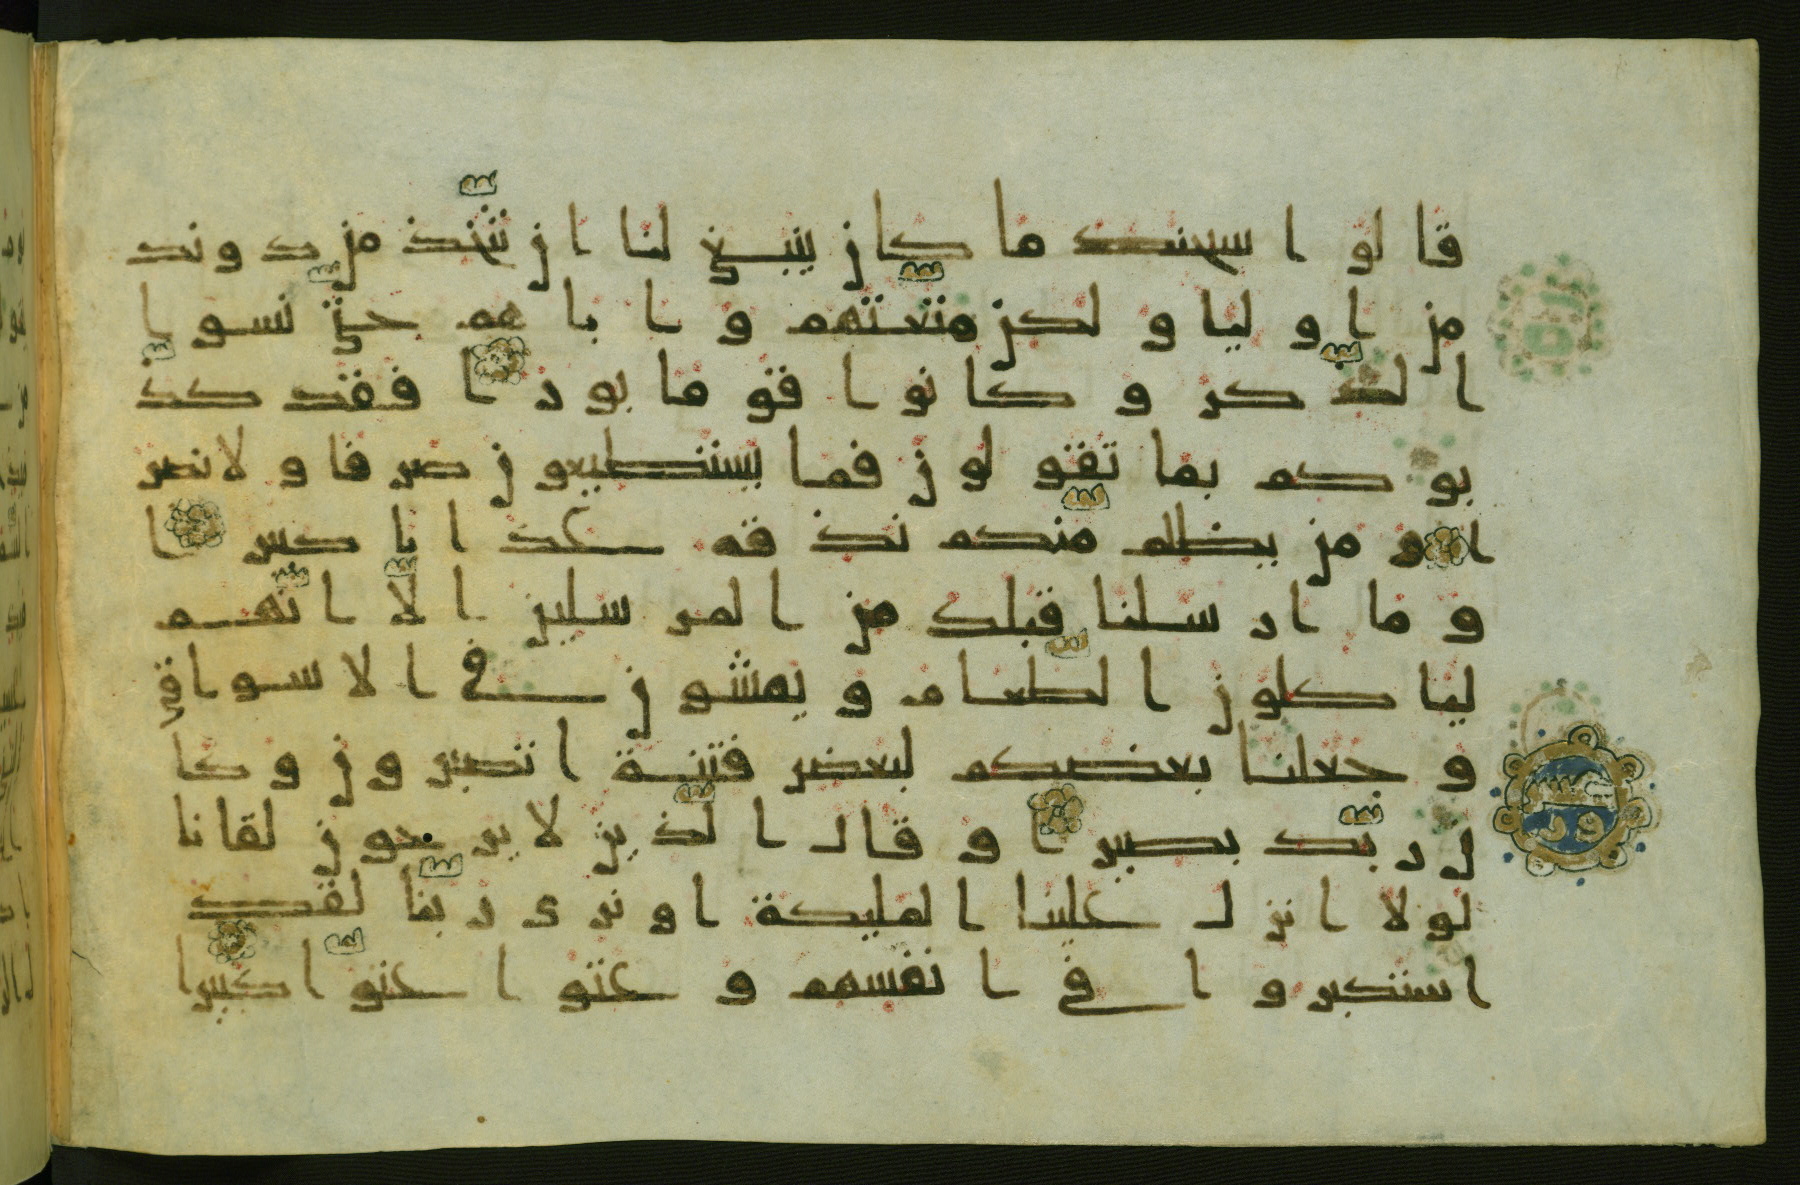 قالوا سبحنك ما كان ينبغي لنا ان نتخذ من دونك
من اوليا ولكن متعتهم وابا هم حتى نسوا
الذكر وكانوا قوما بورا فقد كذ
بوكم بما تقولون فما يستطيعون صرفا ولا نصر
ا ومن يظلم منكم نذقه عذابا كبيرا
وما ارسلنا قبلك من المرسلين الا انهم
لياكلون الطعام ويمشون في الاسواق
وجعلنا بعضكم لبعض فتنة اتصبرون وكا
ن ربك بصيرا وقال الذين لا يرجون لقانا
لولا انزل علينا المليكة او نرى ربنا لقد
استكبروا في انفسهم وعتوا عتوا كبيرا